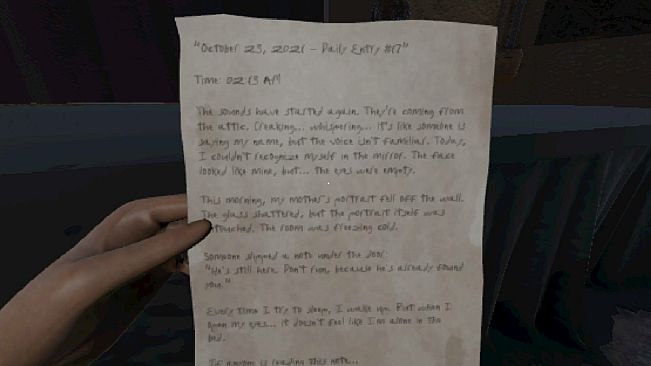 "October 23, 2021 – Daily Entry #17"
Time: 02:13 AM
The sounds have started again. They're coming from
the attic. Creaking... whispering... it's like someone is
saying my name, but the voice isn't familiar. Today,
I couldn't recognize myself in the mirror. The face
looked like mine, but... the eyes were empty.
This morning, my mother's portrait fell off the wall.
The glass shattered, but the portrait itself was
untouched. The room was freezing cold.
Someone slipped a note under the door:
"He's still here. Don't run, because he's already found
you."
Every time I try to sleep, I wake up. But when I
open my eyes... it doesn't feel like I'm alone in the
bed.
If anyone is reading this note...